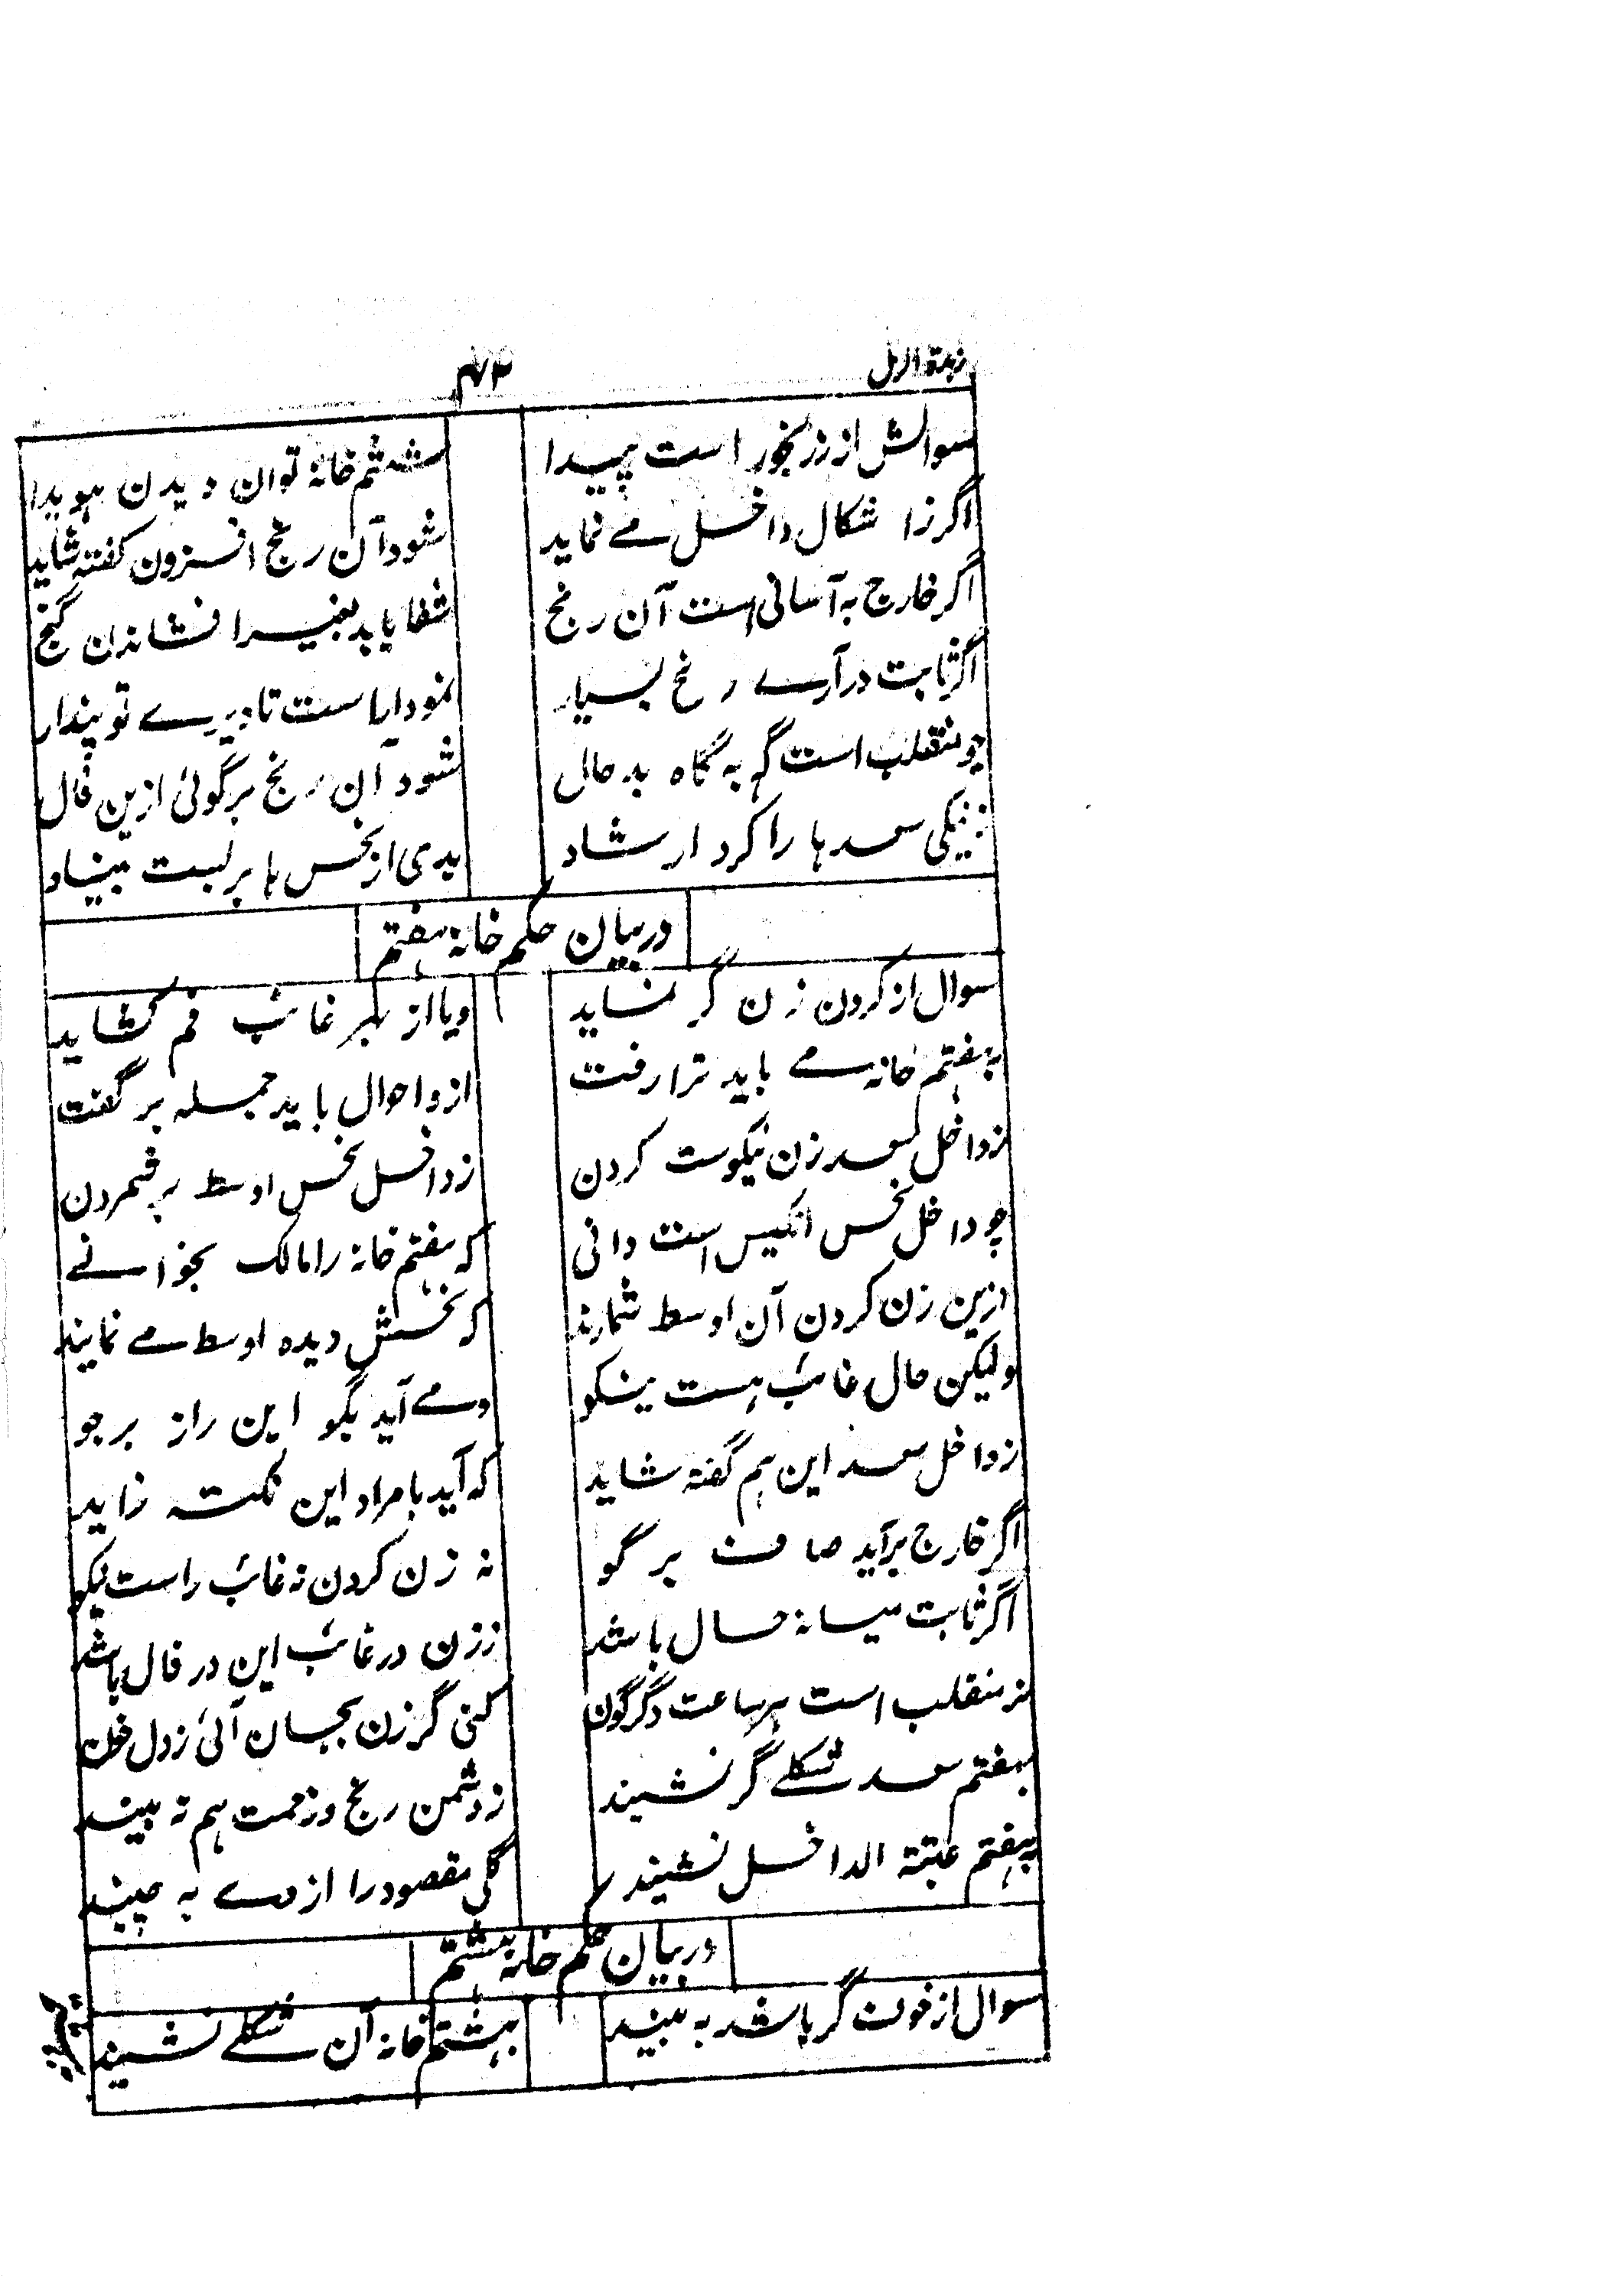 زبدة الرمل
سوالش از ز رنجور است پیدا ششم خانهٔ توان دیدن هویدا
اگر زا شکال داخل مے نماید شود آن رنج افزون گفته شاید
اگر خارج به آسانی است آن رنج شفا یابد بغیر افشاندن گنج
اگر ثابت در آرے رنج بسیار نمودار است تا دیرے تو پندار
چو منقلب است گہ بہ گاہ بد حال شود آن رنج بر گوئی ازین فال
ز نیکی سعد ہا را کرد ارشاد بدی از نحس ہا بر بست بنیاد
در بیان حکم خانۂ ہفتم
سوال از کردن زن گر نماید ویا از بہر غائب فم کشاید
بہفتم خانہ مے باید ترا رفت ازو احوال باید جملہ بر گفت
ز داخل سعد زن نیکوست کردن ز داخل نحس اوسط بر شمردن
چو داخل نحس انکیس است دانی کہ ہفتم خانہ را مالک بخوانے
ازین زن کردن آن اوسط شمارند کہ نحسش دیدہ اوسط مے نمایند
ولیکن حال غائب ہست نیکو وے آید بگو این راز برجو
ز داخل سعد این ہم گفتہ شاید کہ آید با مراد این نکتہ زاید
اگر خارج برآید صاف بر گو نہ زن کردن نہ غائب راست نیکو
اگر ثابت میانہ حال باشد ز زن در غائب این در فال باشد
ز منقلب است ہر ساعت دگرگون کنی گر زن بجان آئی ز دل خون
بہفتم سعد شکلے گر نشیند ز دشمن رنج و زحمت ہم نہ بیند
بہفتم عتبة الداخل نشیند گل مقصود را از وے بہ چیند
در بیان حکم خانہ ہشتم
سوال از خوف گر باشد بہ بیند بہشتم خانہ آن شکلے نشیند